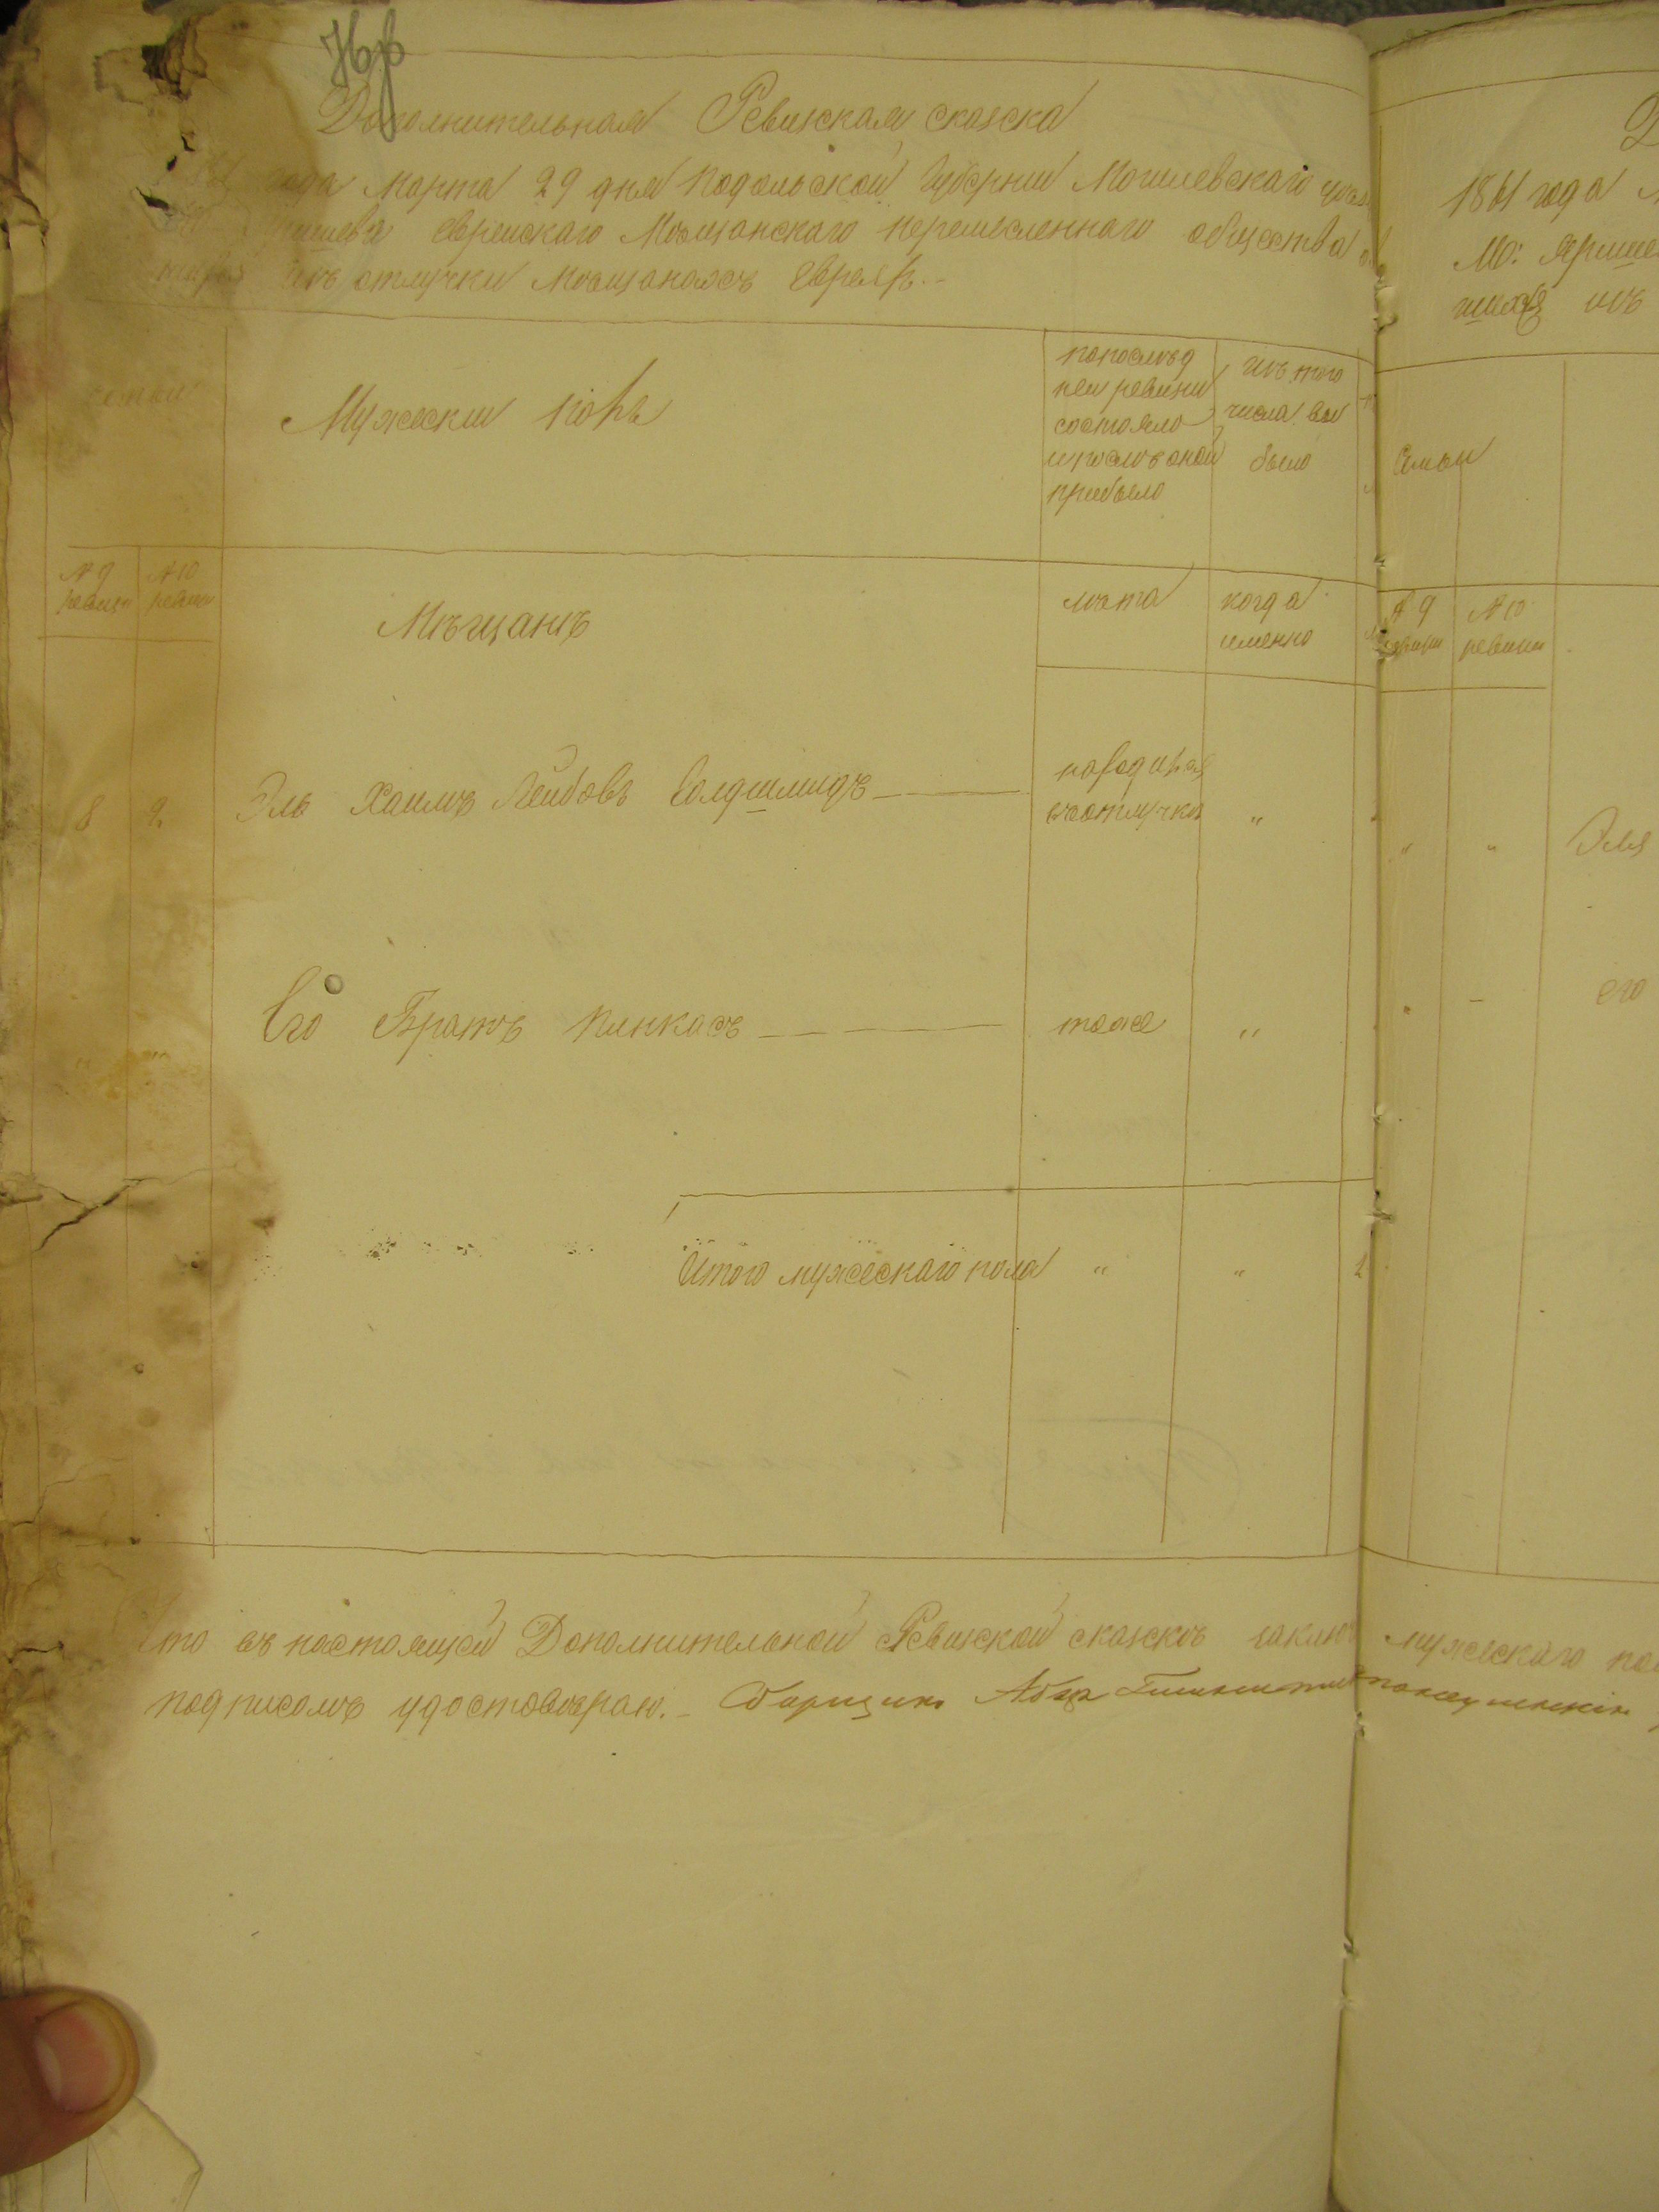 Дополнительная Ревизская сказка
года марта 29 дня Подольской Губернии Могилевскаго
еврейскаго Мѣщанскаго перечисленнаго общества
изъ отлучки мѣщанахъ Евреяхъ.
семьи
Мужескій полъ
по послѣд
ней ревизіи
состояло
и послѣ оной
прибыло
изъ того
числа вы
было
№ 9 ревизіи
№ 10 ревизіи
Мѣщанъ
лѣта
когда именно
8
2
Эль Хаимъ Лейбовъ Голдшмидъ
въ отлучкѣ
"
" "
Его Братъ Пинкасъ
тоже
"
Итого мужескаго пола " " 2
Что въ настоящей Дополнительной Ревизской сказкѣ
подписомъ удостовѣраю.
1861 года
М: Ярыше
изъ
Семьи
№ 9 ревизіи
№ 10 ревизіи
" "
Эля
" -
его
мужескаго